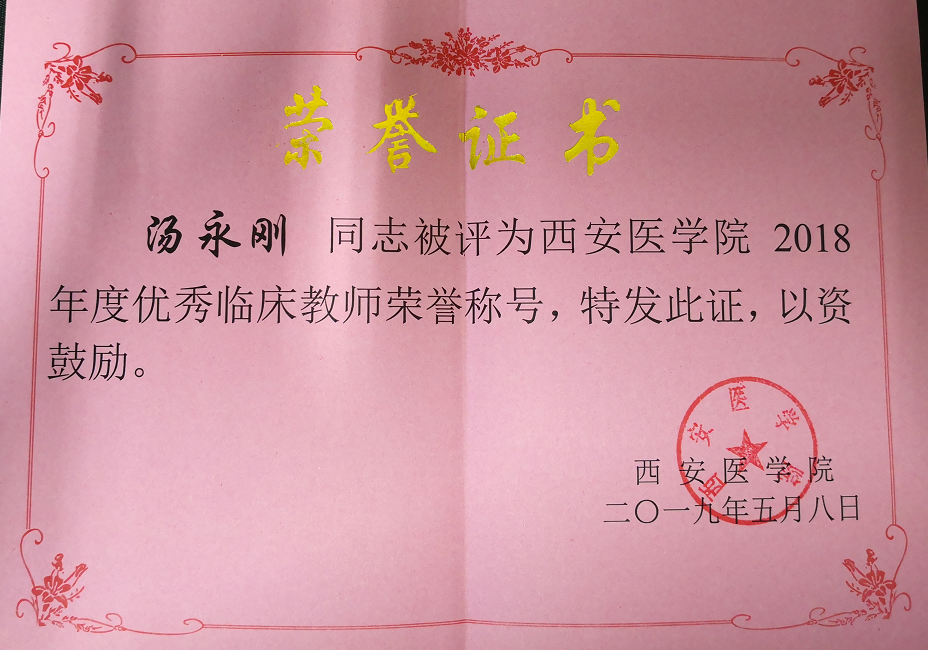 荣誉证书
汤永刚 同志被评为西安医学院 2018
年度优秀临床教师荣誉称号，特发此证，以资
鼓励。
西安医学院
西安医学院
二〇一九年五月八日